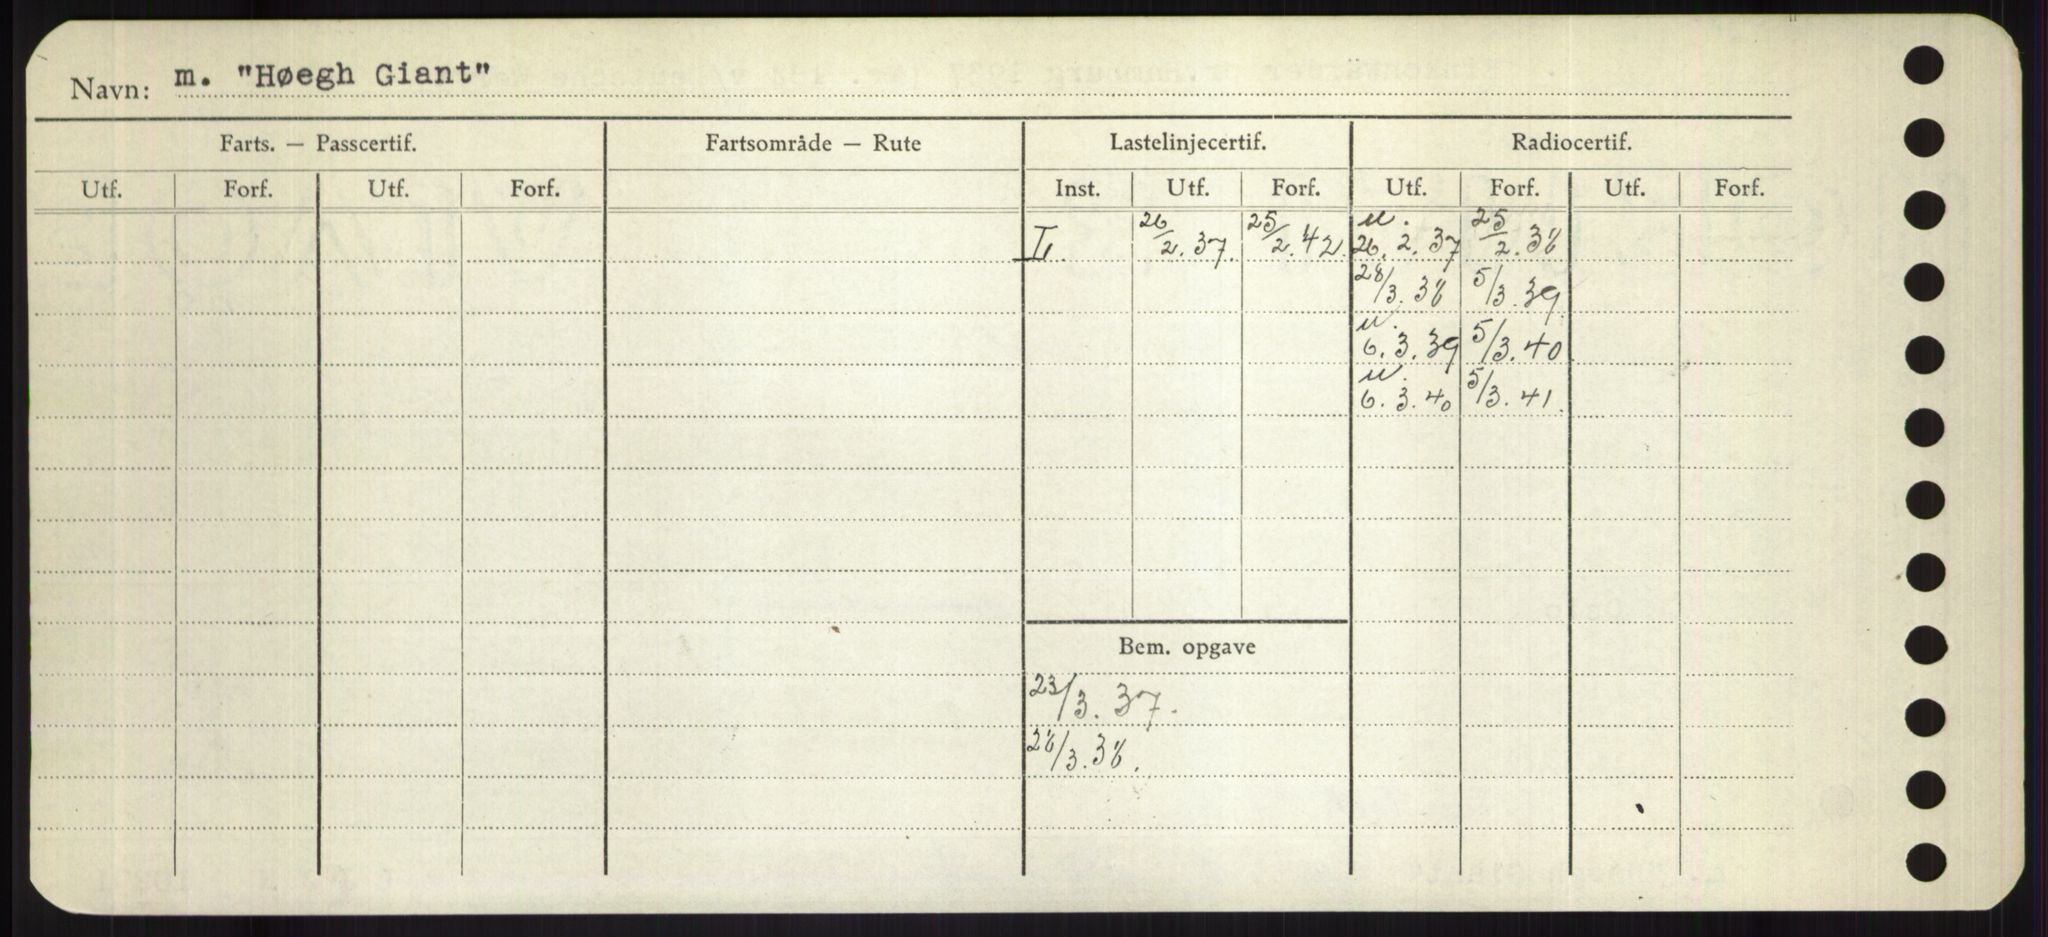 Navn: m. "Høegh Giant"
Farts. — Passcertif. Fartsområde — Rute Lastelinjecertif. Radiocertif.
Utf. Forf. Utf. Forf. Inst. Utf. Forf. Utf. Forf. Utf. Forf.
L. 26/2.37. 25/2.42. u. 26.2.37 25/2.38
28/3.38 5/3.39
u. 6.3.39 5/3.40
u. 6.3.40 5/3.41.
Bem. opgave
23/3.37.
28/3.38.